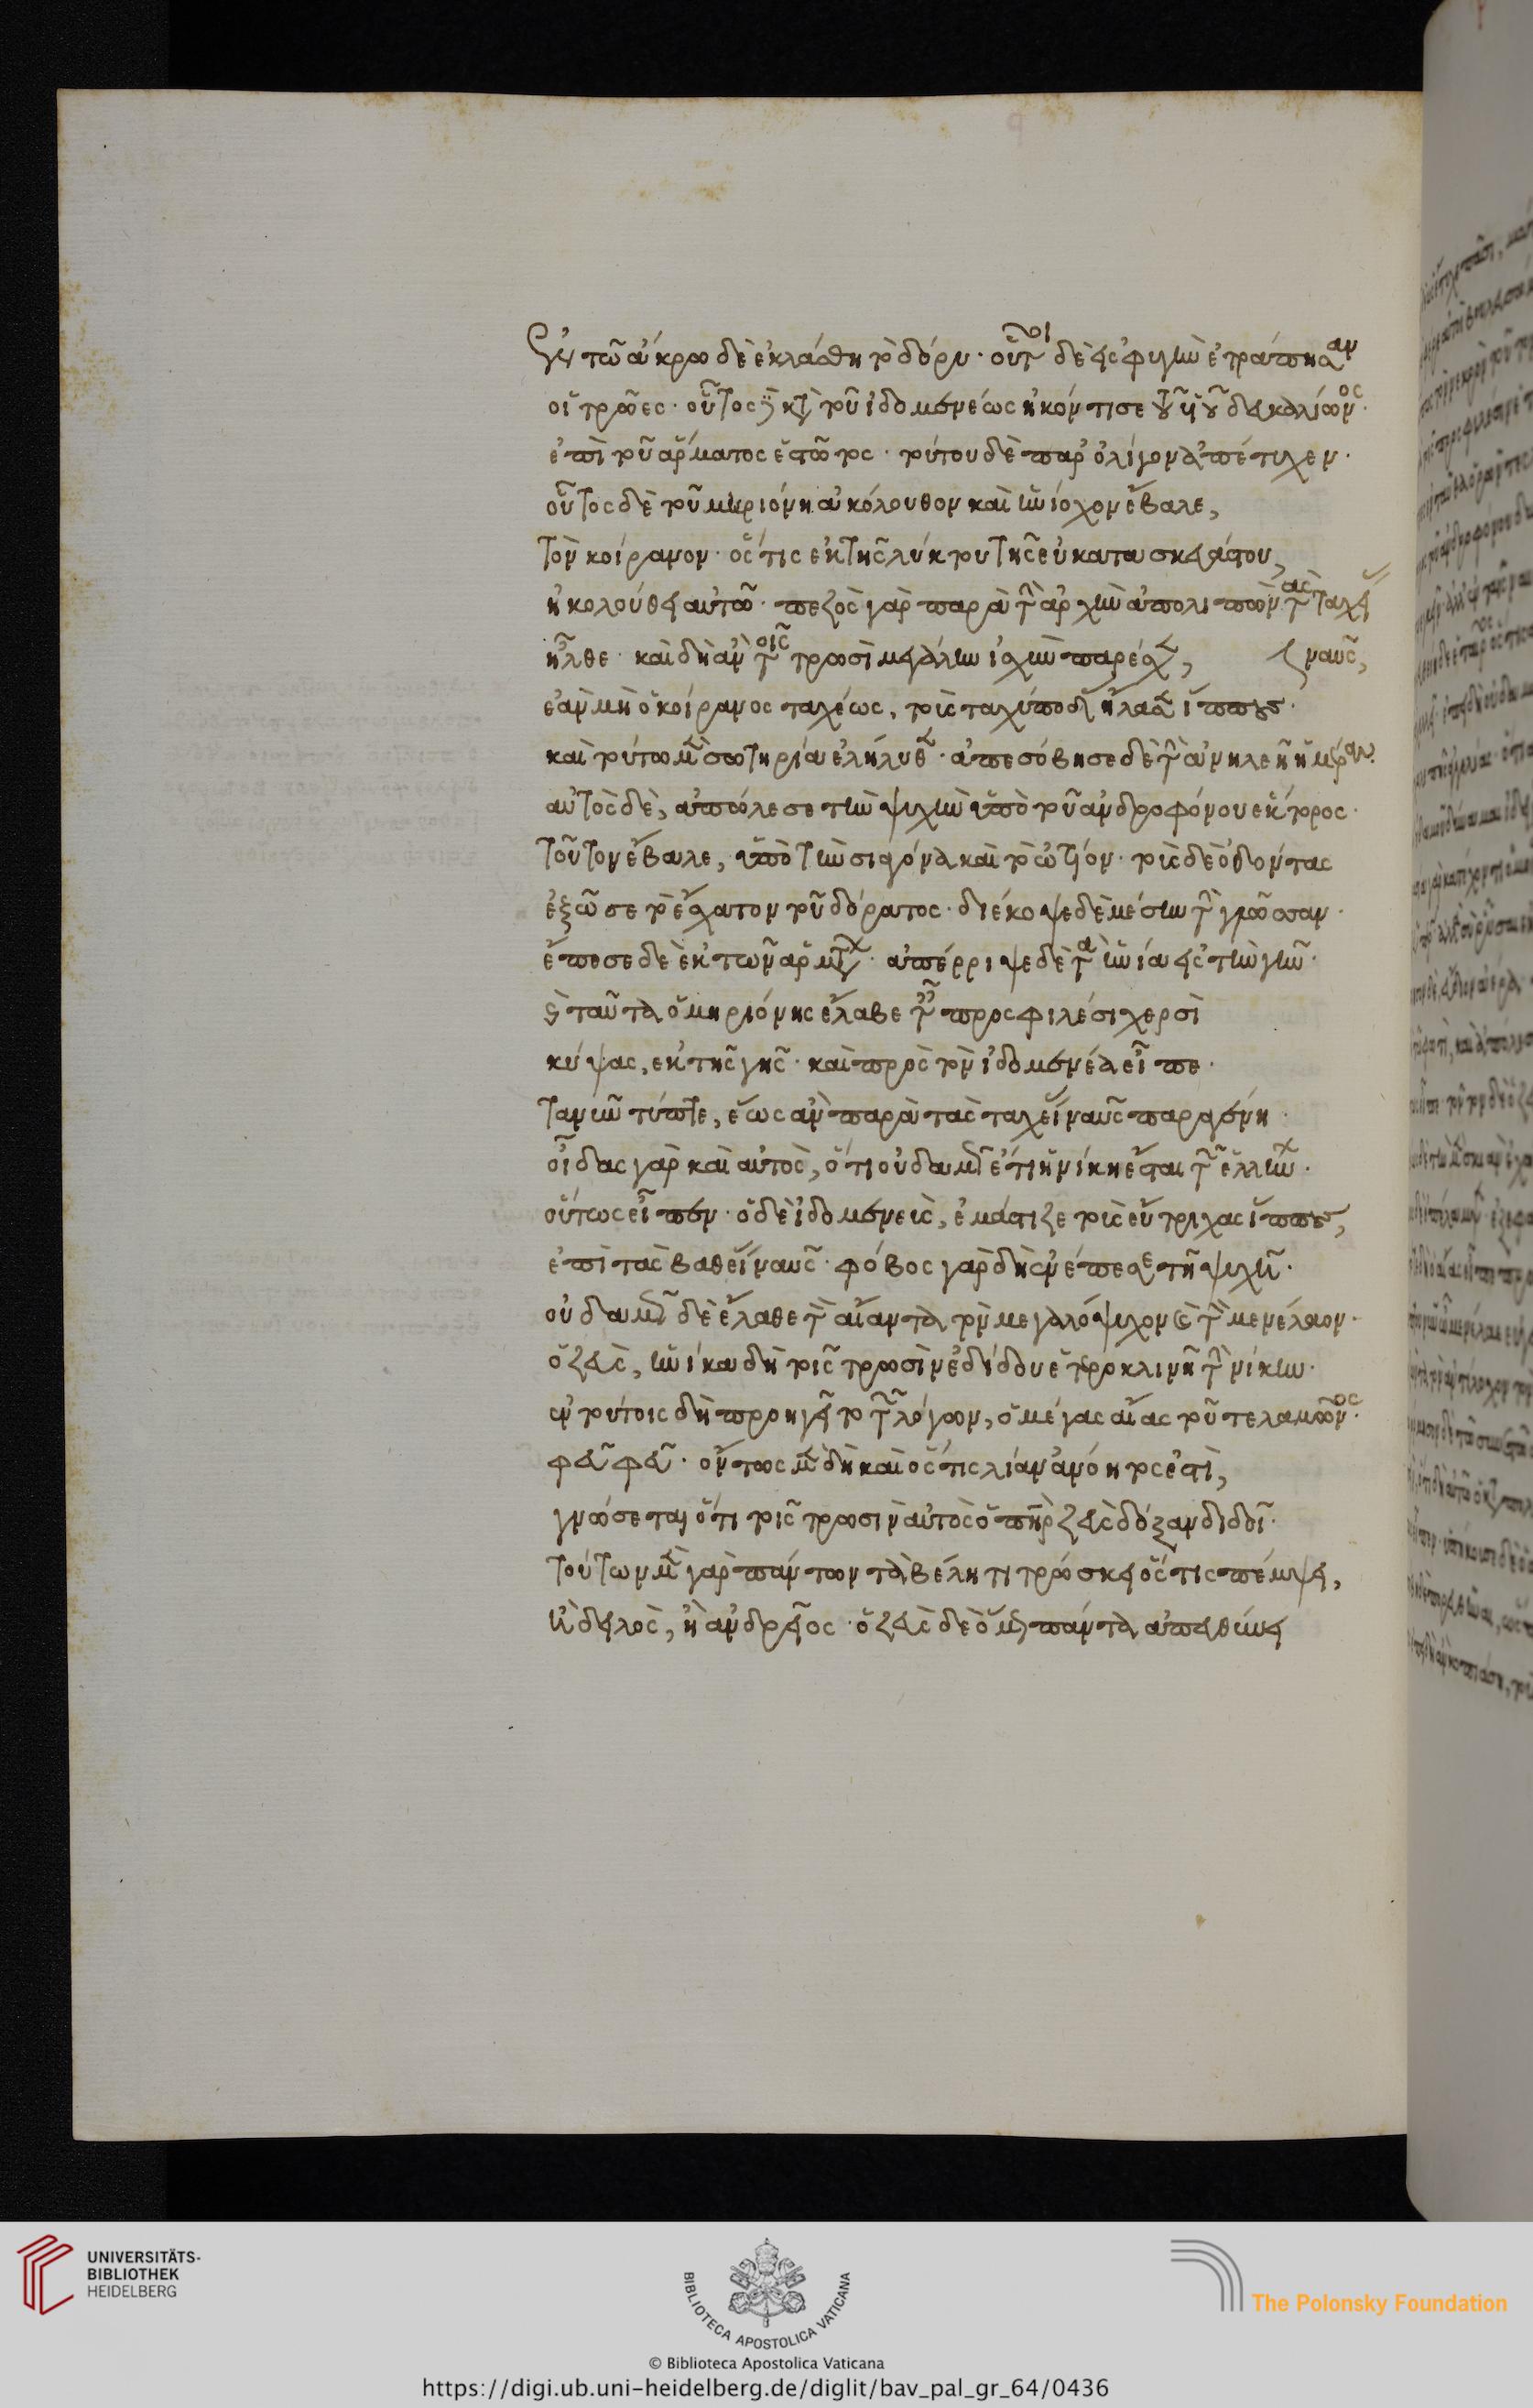 ἐν τῶ ἄκρω δὲ ἐκλάσθη τὸ δόρυ· οὗτοι δὲ εἰς φυγὴν ἐτράπησαν
οἱ τρῶες· οὗτος δὲ κατὰ τοῦ ἰδομενέως ἠκόντισε τοῦ υἱοῦ δευκαλίωνος·
ἐπὶ τοῦ ἅρματος ἑστῶτος· τούτου δὲ παρ' ὀλίγον ἀπέτυχεν·
οὗτος δὲ τοῦ μηριόνη ἀκόλουθον καὶ ἡνίοχον ἔβαλε,
τὸν κοίρανον· ὅστις ἐκ τῆς λύκτου τῆς εὐκατασκευάστου,
ἠκολούθει αὐτῶ· πεζὸς γὰρ παρὰ τὴν ἀρχὴν ἀπολιπὼν τὰς ταχείας
ἦλθε· καὶ δὴ ἂν τοῖς τρωσὶ μεγάλην ἰσχὺν παρέσχεν, ναῦς,
ἐὰν μὴ ὁ κοίρανος ταχέως, τοὺς ταχύποδας ἤλασεν ἵππους·
καὶ τούτω μὲν σωτηρία ἐλήλυθεν· ἀπεσόβησε δὲ τὴν ἀνηλεῆ ἡμέραν·
αὐτὸς δὲ, ἀπώλεσε τὴν ψυχὴν ὑπὸ τοῦ ἀνδροφόνου ἕκτορος·
τοῦτον ἔβαλε, ὑπὸ τὴν σιαγόνα καὶ τὸ ὠτίον· τοὺς δὲ ὀδόντας
ἐξῶσε τὸ ἔσχατον τοῦ δόρατος· διέκοψε δὲ μέσην τὴν γλῶσσαν·
ἔπεσε δὲ ἐκ τῶν ἁρμάτων· ἀπέρριψε δὲ τὰ ἡνία εἰς τὴν γῆν·
καὶ ταῦτα ὁ μηριόνης ἔλαβε ταῖς προσφιλέσι χερσὶ
κύψας, ἐκ τῆς γῆς· καὶ πρὸς τὸν ἰδομενέα εἶπε·
τανῦν τύπτε, ἕως ἂν παρὰ τὰς ταχείας ναῦς παραγένη·
οἶδας γὰρ καὶ αὐτὸς, ὅτι οὐδαμῶς ἔτι ἡ νίκη ἔσται τῶν ἑλλήνων·
οὕτως εἶπεν· ὁ δὲ ἰδομενεὺς, ἐμάστιζε τοὺς εὔτριχας ἵππους,
ἐπὶ τὰς βαθείας ναῦς· φόβος γὰρ δὴ ἐνέπεσε τῆ ψυχῆ·
οὐδαμῶς δὲ ἔλαθε τὸν αἴαντα τὸν μεγαλόψυχον καὶ τὸν μενέλαον·
ὁ ζεὺς, ἡνίκα δὴ τοῖς τρωσὶν ἐδίδου ἑτεροκλινῆ τὴν νίκην·
ἐν τούτοις δὴ προηγεῖτο τῶν λόγων, ὁ μέγας αἴας τοῦ τελαμῶνος·
φεῦ φεῦ· ὄντως μὲν δὴ καὶ ὅστις λίαν ἀνόητος ἐστὶ,
γνώσεται ὅτι τοῖς τρωσὶν αὐτὸς ὁ πατὴρ ζεὺς δόξαν διδοῖ·
τούτων μὲν γὰρ πάντων τὰ βέλη τιτρώσκει ὅστις πέμψει,
ἢ δειλὸς, ἢ ἀνδρεῖος· ὁ ζεὺς δὲ ὅμως πάντα ἀπευθύνει
UNIVERSITÄTS-
BIBLIOTHEK
HEIDELBERG
BIBLIOTECA APOSTOLICA VATICANA
The Polonsky Foundation
© Biblioteca Apostolica Vaticana
https://digi.ub.uni-heidelberg.de/diglit/bav_pal_gr_64/0436